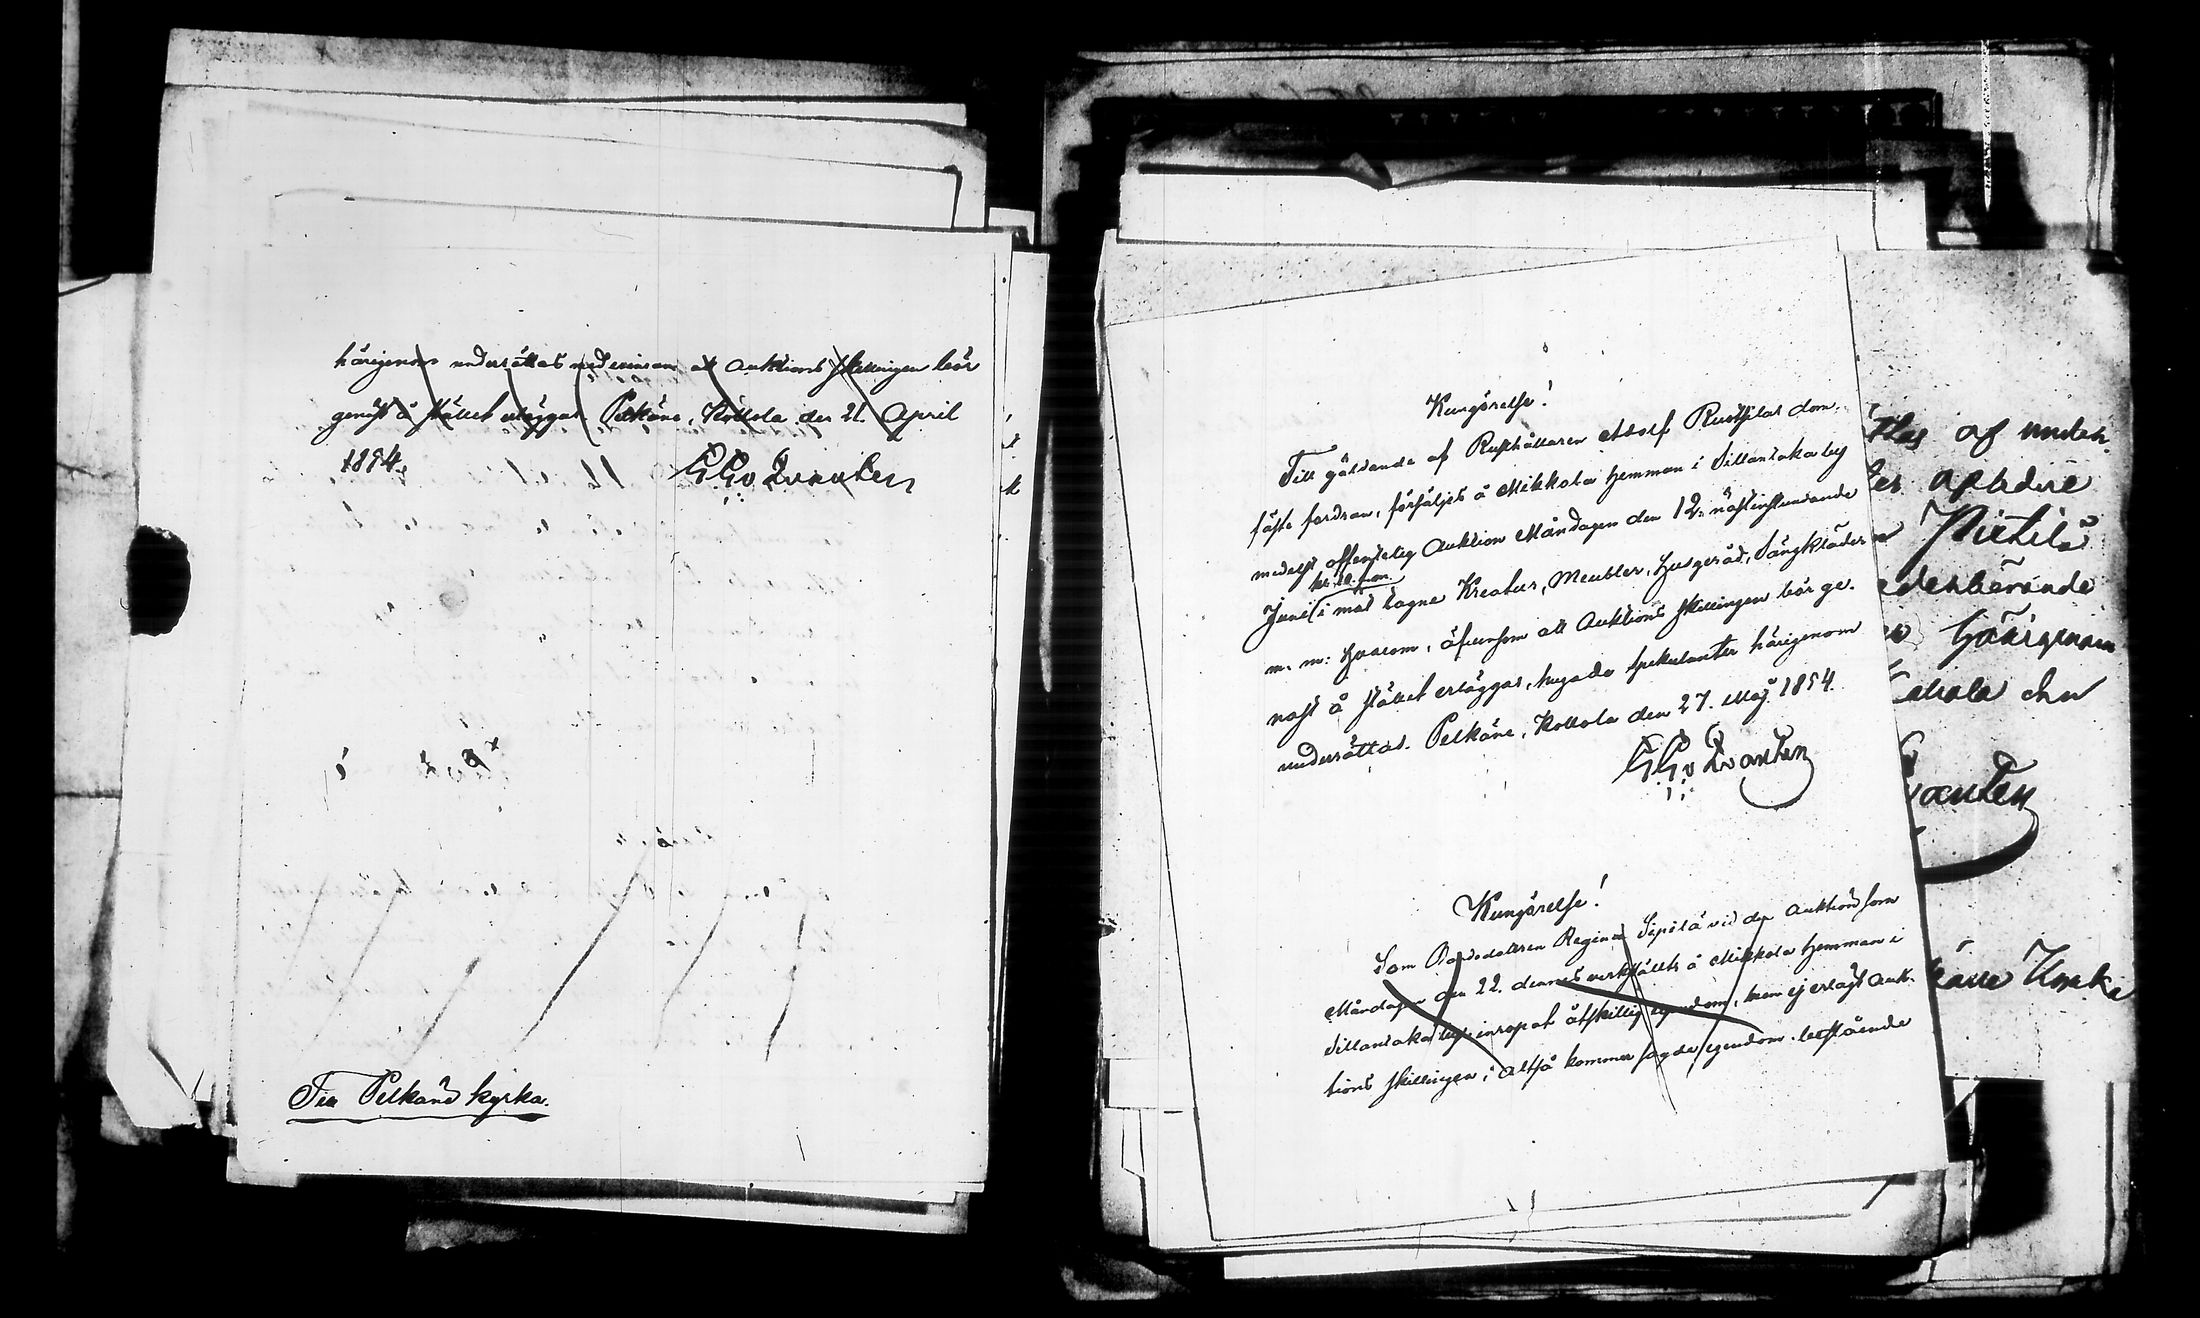 härigenom undersättas med erinran att Auktions skillingen bör
genast å stället erläggas. Pelkäne, Kollola den 21. April
1854.
G G v Qvanten
Till Pelkäne kyrka.
Kungörelse!
Till gäldande af Rusthållaren Adolf Rustfilas dom,
fäste fordran, försäljes å Mikkola Hemman i Sillansaka by
medelst offentelig Auktion Måndagen den 12. nästinstundande
kl. 10. f.m.
Juni i mät tagne Kreatur, Meubler, Husgeråd, Sängkläder
m. m: Hvarom, äfvensom att Auktions skillingen bör ge-
nast å stället erläggas, hugade spekulanter härigenom
underrättas. Pelkäne, Kollola den 27. Maj 1854.
G G v Qvanten
Kungörelse!
Som Regina Sipilä vid den Auktion som
Måndagen den 22. dennes verkstälts å Mikkola Hemman i
Sillansaka by inropat åtskillig egendom, men ej erlagt Auk-
tions skillingen; Altså kommer sagde egendom, bestående
af under-
Pietilä
vederbörande
härigenom
Kollola den
Qvanten